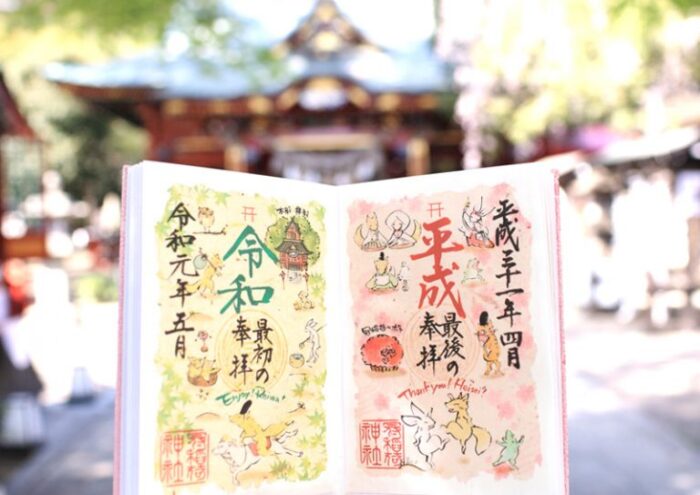 平成三十一年四月
平成
最後の
奉拝
Thank you! Heisei
稲荷
神社
令和
最初の
奉拝
Enjoy! Reiwa!
令和元年五月
稲荷
神社